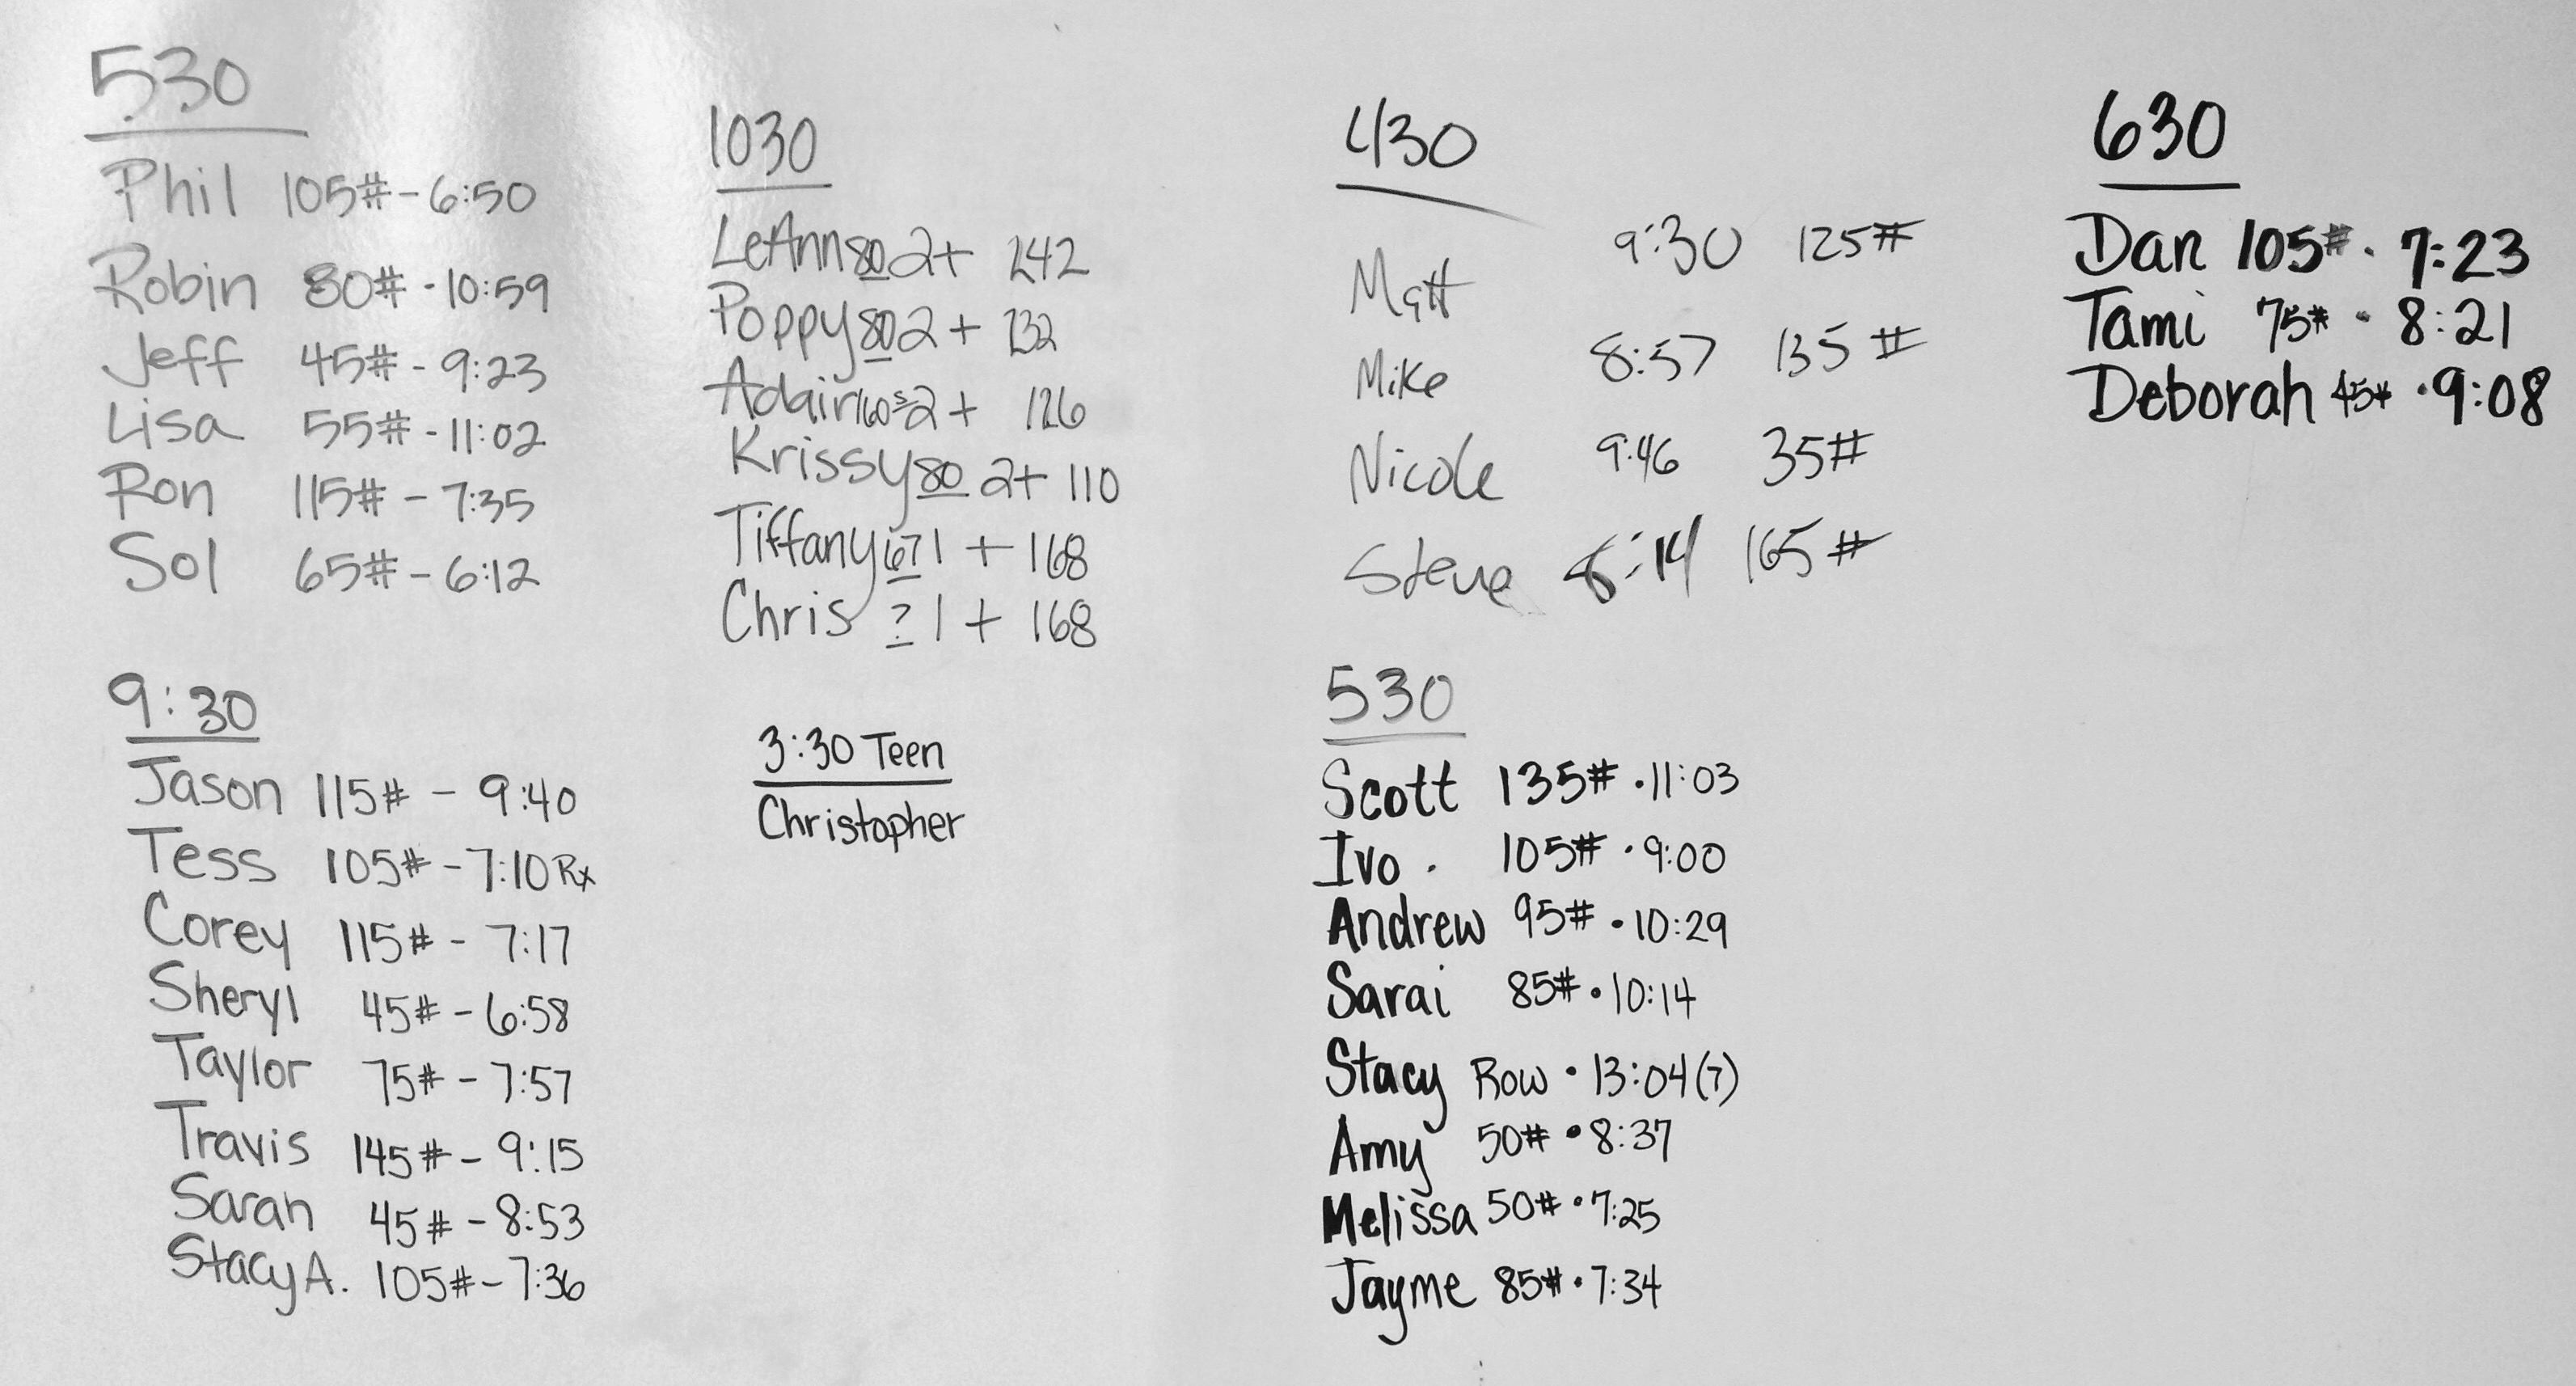 530
Phil 105# - 6:50
Robin 80# - 10:59
Jeff 45# - 9:23
Lisa 55# - 11:02
Ron 115# - 7:35
Sol 65# - 6:12
9:30
Jason 115# - 9:40
Tess 105# - 7:10 Rx
Corey 115# - 7:17
Sheryl 45# - 6:58
Taylor 75# - 7:57
Travis 145# - 9:15
Sarah 45# - 8:53
Stacy A. 105# - 7:36
1030
LeAnn 80 2+ 242
Poppy 80 2 + 232
Adair 2 + 126
Krissy 80 2+ 110
Tiffany 67 1 + 168
Chris ? 1 + 168
3:30 Teen
Christopher
430
Matt 9:30 125#
Mike 8:57 135#
Nicole 9:46 35#
Steve 8:14 165#
530
Scott 135# · 11:03
Ivo · 105# · 9:00
Andrew 95# · 10:29
Sarai 85# · 10:14
Stacy Row · 13:04 (7)
Amy 50# · 8:37
Melissa 50# · 7:25
Jayme 85# · 7:34
630
Dan 105# · 7:23
Tami 75# - 8:21
Deborah 45# · 9:08